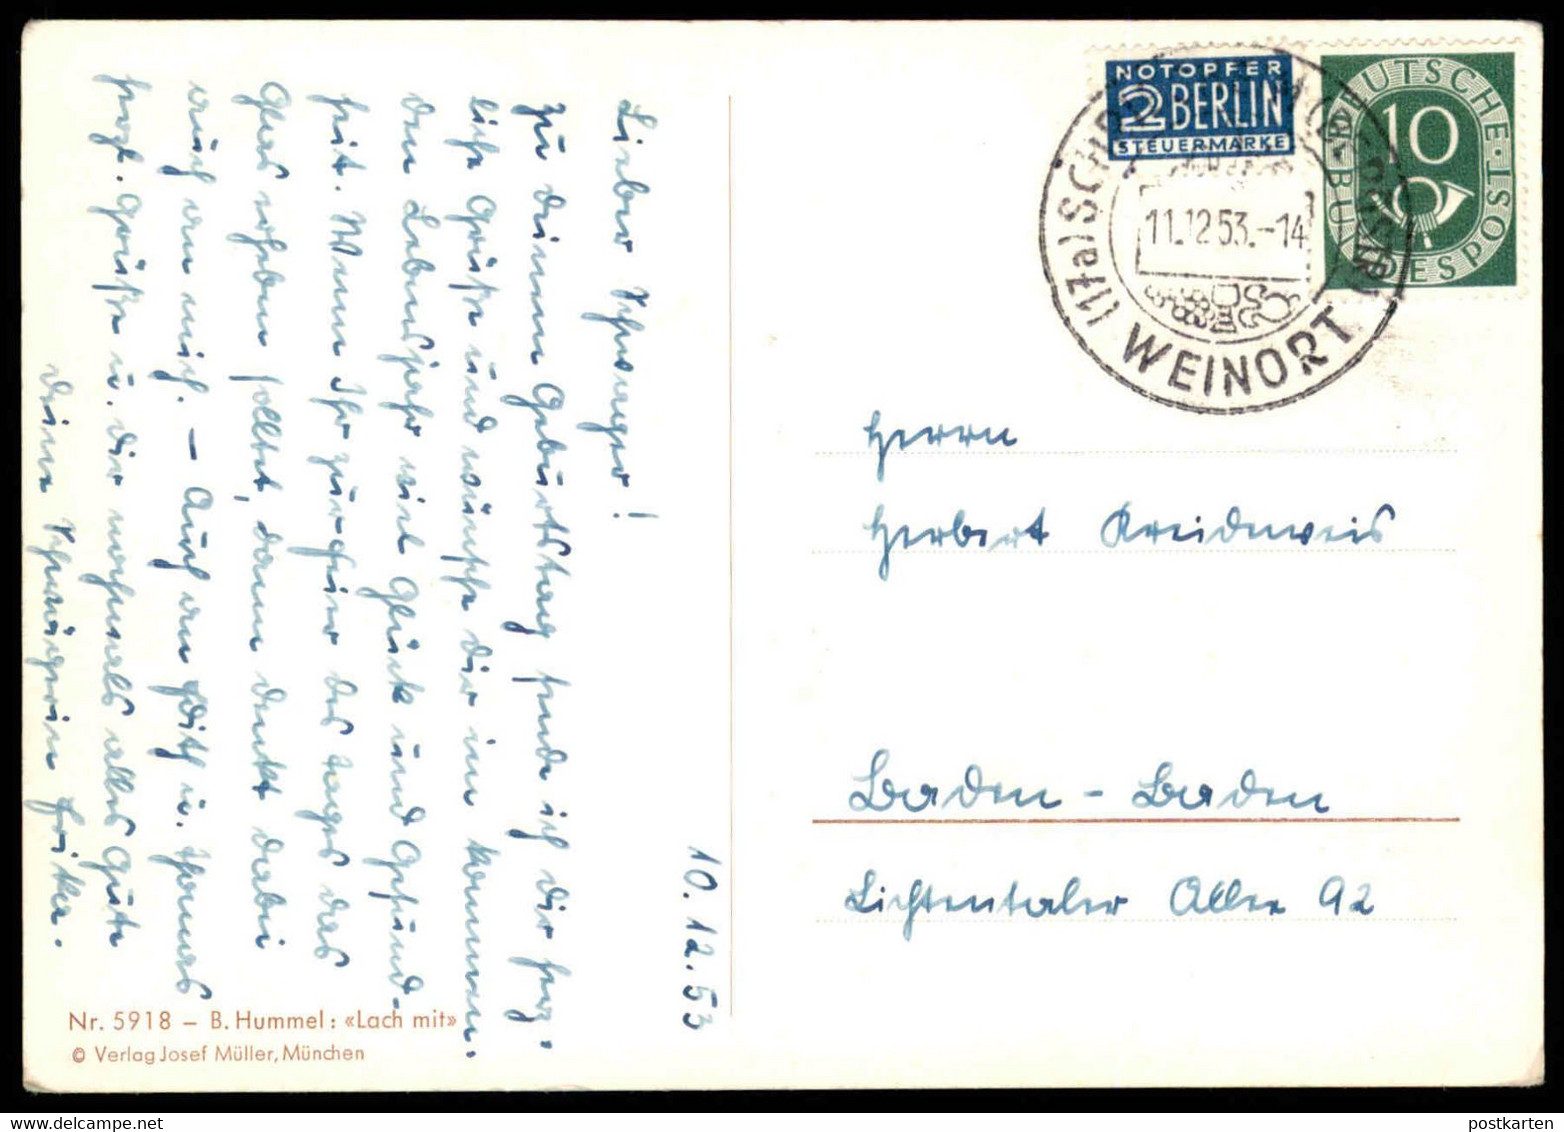 10.12.53
Lieber Schwager!
Zu deinem Geburtstag sende ich dir herz-
liche Grüße und wünsche dir im kommen-
den Lebensjahr viel Glück und Gesund-
heit. Wenn Ihr zur Feier des Tages das
Glas erheben solltet, dann denkt dabei
auch an mich. – Auch an Edith u. Thomas
herzl. Grüße u. dir nochmals alles Gute
deine Schwägerin Erika.
Nr. 5918 – B. Hummel: «Lach mit»
© Verlag Josef Müller, München
NOTOPFER
2 BERLIN
STEUERMARKE
DEUTSCHE BUNDESPOST
10
(17a) SCH
11.12.53.-14
WEINORT
Herrn
Herbert Kreidenweis
Baden-Baden
Lichtentaler Allee 92
postkarten